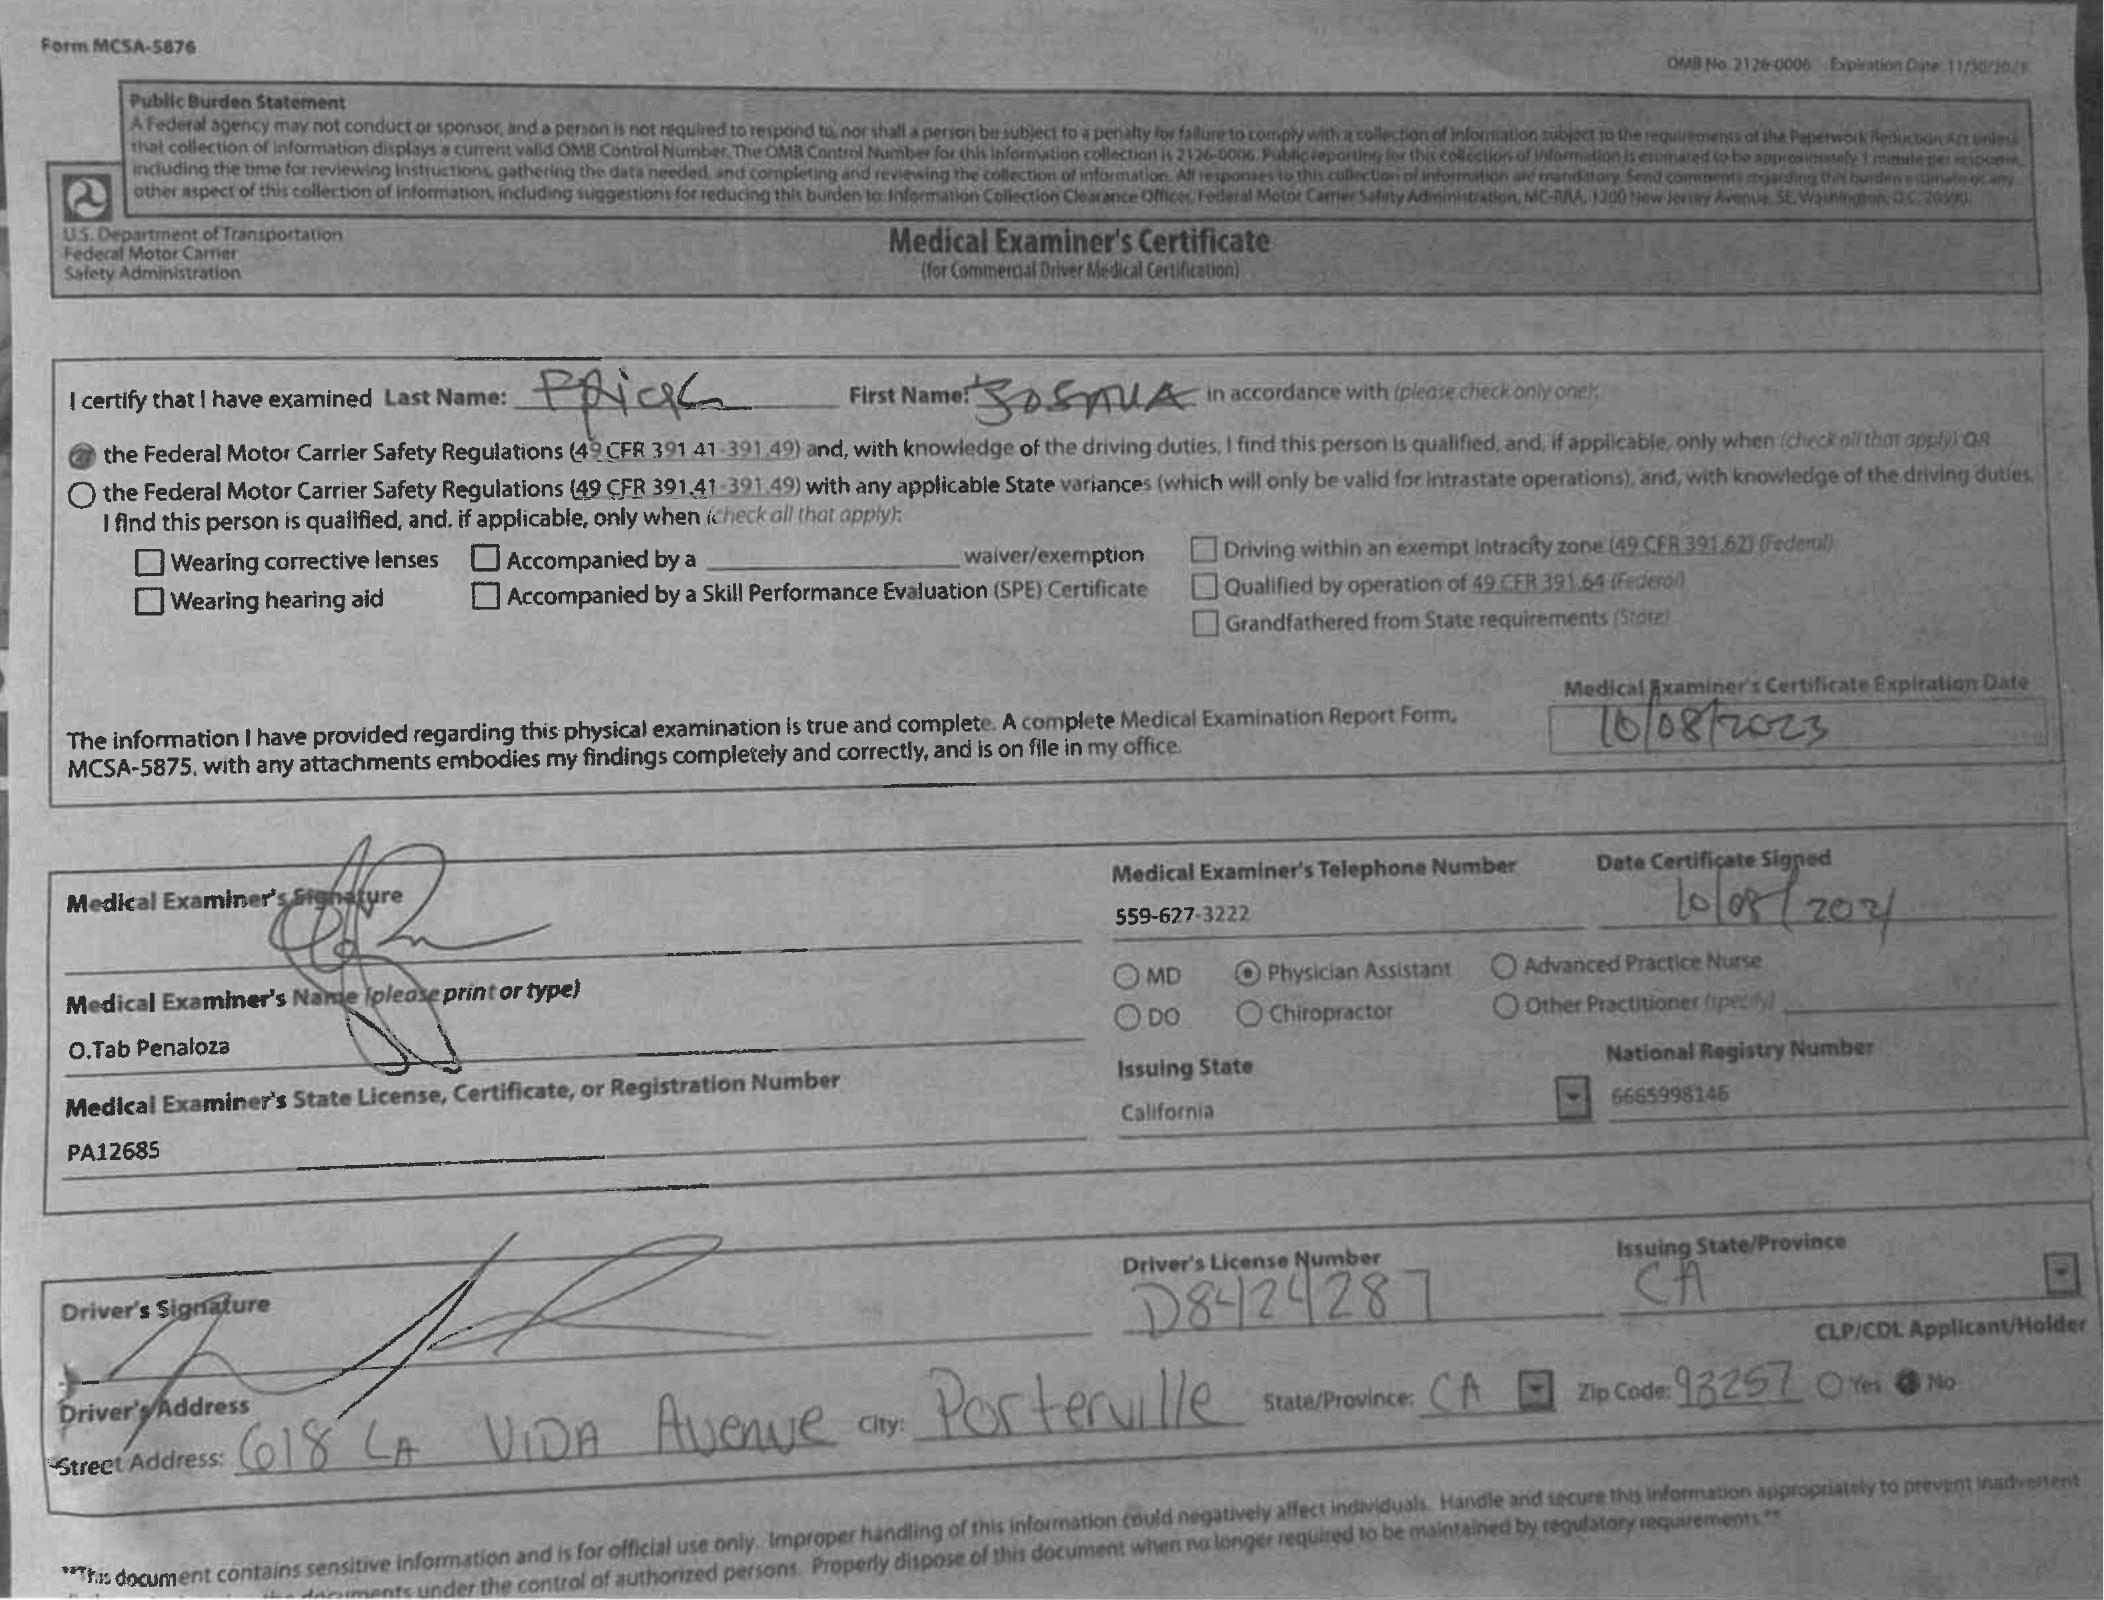 Form MCSA-5876
OMB No. 2126-0006 Expiration Date: 11/30/202
Public Burden Statement
A Federal agency may not conduct or sponsor, and a person is not required to respond to, nor shall a person be subject to a penalty for failure to comply with a collection of information subject to the requirements of the Paperwork Reduction Act unless
that collection of information displays a current valid OMB Control Number. The OMB Control Number for this information collection is 2126-0006. Public reporting for this collection of information is estimated to be approximately 1 minute per response,
including the time for reviewing instructions, gathering the data needed, and completing and reviewing the collection of information. All responses to this collection of information are mandatory. Send comments regarding this burden estimate or any
other aspect of this collection of information, including suggestions for reducing this burden to: Information Collection Clearance Officer, Federal Motor Carrier Safety Administration, MC-RRA, 1200 New Jersey Avenue, SE, Washington, D.C. 20590.
U.S. Department of Transportation
Federal Motor Carrier
Safety Administration
Medical Examiner's Certificate
(for Commercial Driver Medical Certification)
I certify that I have examined Last Name: First Name: JOSHUA in accordance with (please check only one):
the Federal Motor Carrier Safety Regulations (49 CFR 391 41-391 49) and, with knowledge of the driving duties, I find this person is qualified, and, if applicable, only when (check all that apply) OR
the Federal Motor Carrier Safety Regulations (49 CFR 391.41-391.49) with any applicable State variances (which will only be valid for intrastate operations), and, with knowledge of the driving duties,
I find this person is qualified, and, if applicable, only when (check all that apply):
Wearing corrective lenses Accompanied by a waiver/exemption Driving within an exempt intracity zone (49 CFR 391.62) (Federal)
Wearing hearing aid Accompanied by a Skill Performance Evaluation (SPE) Certificate Qualified by operation of 49 CFR 391.64 (Federal)
Grandfathered from State requirements (State)
Medical Examiner's Certificate Expiration Date
10/08/2023
The information I have provided regarding this physical examination is true and complete. A complete Medical Examination Report Form,
MCSA-5875, with any attachments embodies my findings completely and correctly, and is on file in my office.
Medical Examiner's Signature
Medical Examiner's Telephone Number
559-627-3222
Date Certificate Signed
10/08/2021
MD Physician Assistant Advanced Practice Nurse
DO Chiropractor Other Practitioner (specify)
Medical Examiner's Name (please print or type)
O.Tab Penaloza
Issuing State
California
National Registry Number
6665998146
Medical Examiner's State License, Certificate, or Registration Number
PA12685
Driver's Signature
Driver's License Number
D8424287
Issuing State/Province
CA
CLP/CDL Applicant/Holder
Yes No
Driver's Address
Street Address: 618 LA VIDA Avenue City: Porterville State/Province: CA Zip Code: 93257
**This document contains sensitive information and is for official use only. Improper handling of this information could negatively affect individuals. Handle and secure this information appropriately to prevent inadvertent
documents under the control of authorized persons. Properly dispose of this document when no longer required to be maintained by regulatory requirements.**